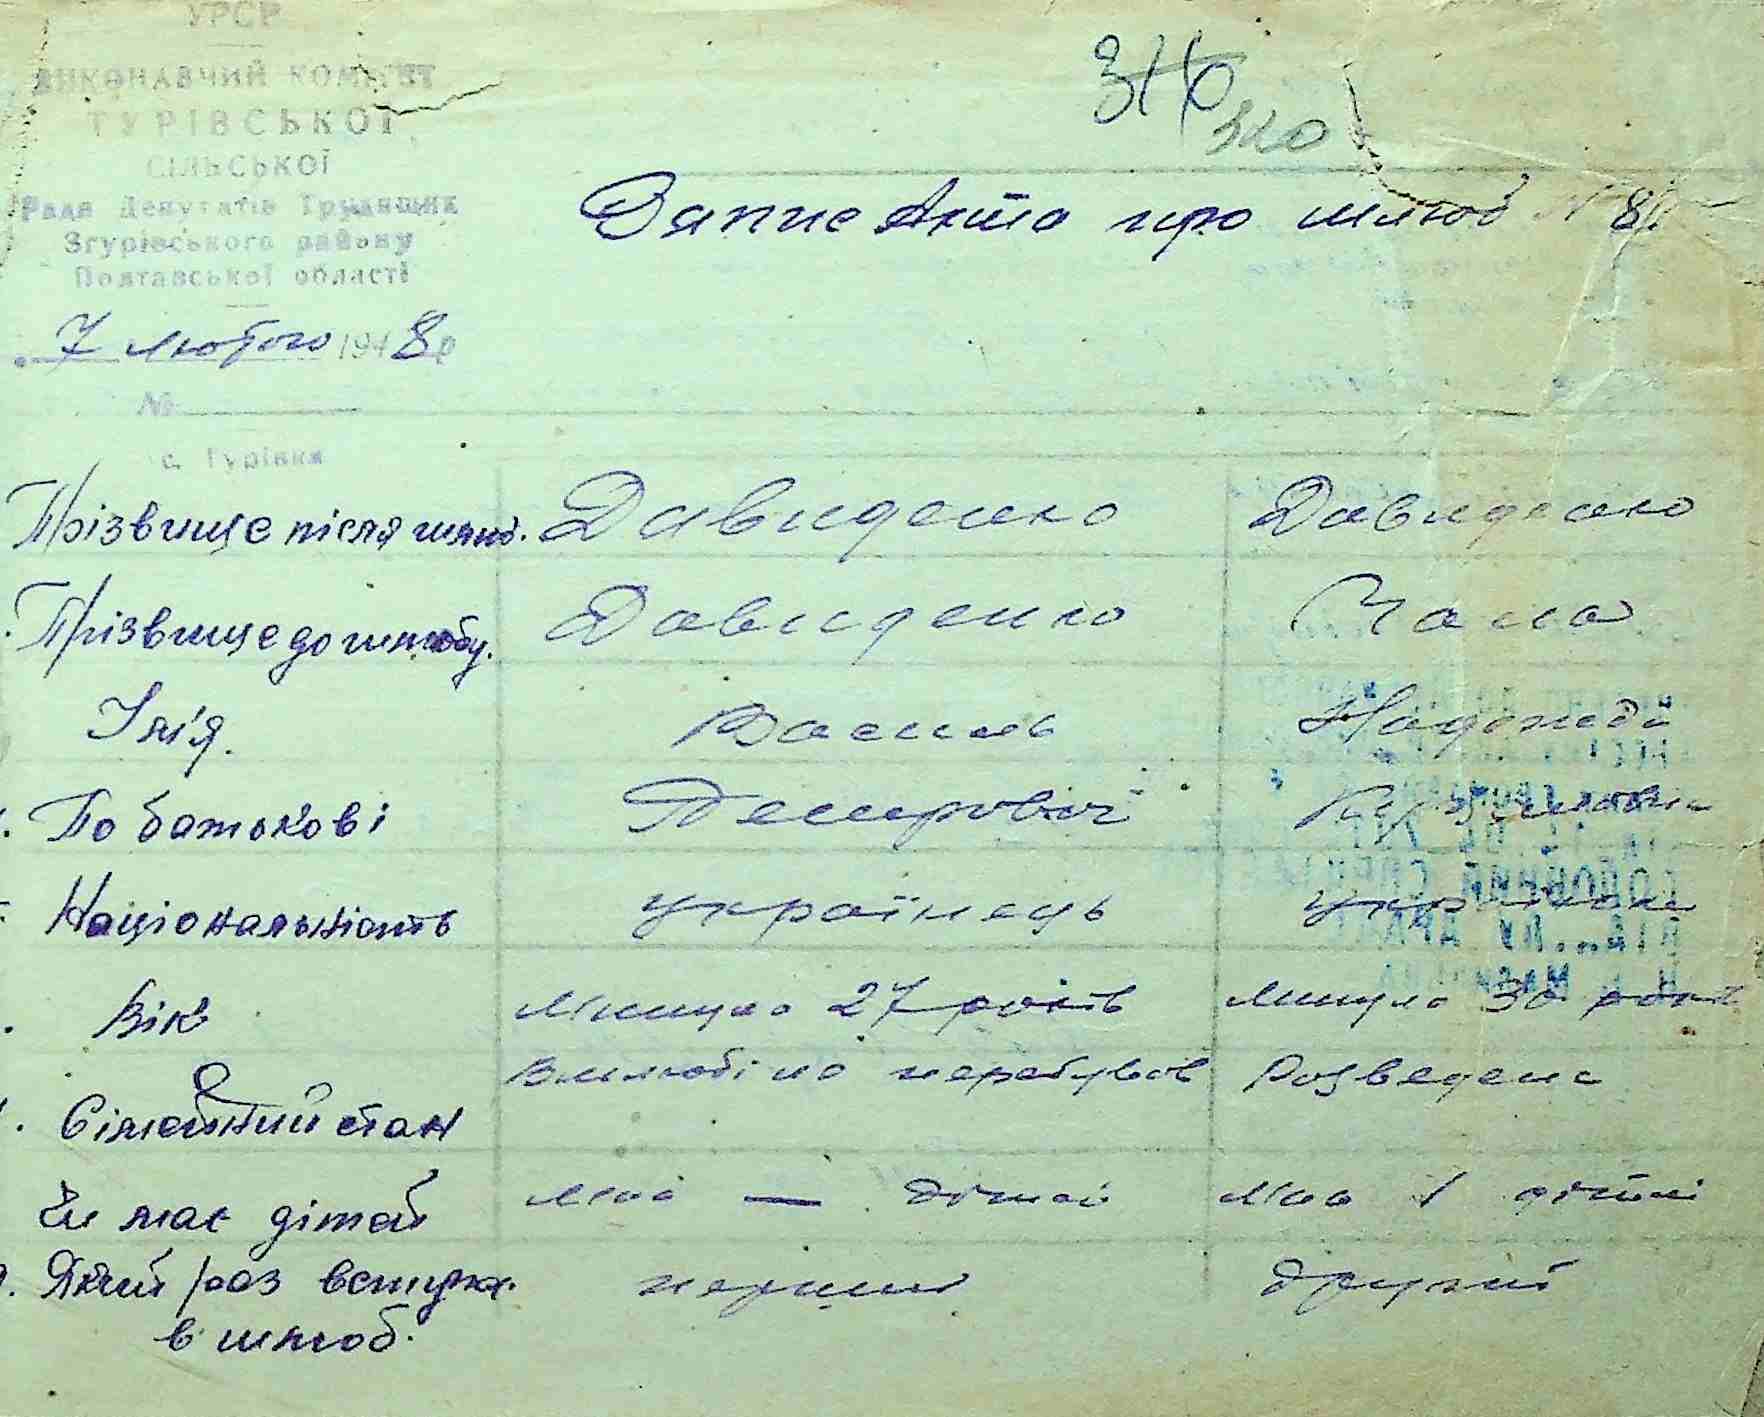 УРСР
ВИКОНАВЧИЙ КОМІТЕТ
ТУРІВСЬКОЇ
СІЛЬСЬКОЇ
Ради Депутатів Трудящих
Згурівського району
Полтавської області
7 лютого 1948 р
№
с. Турівка
320
Запис Акта про шлюб № 8
Прізвище після шлюб. Давиденко Давиденко
Прізвище до шлюбу. Давиденко Чала
Ім'я. Василь Надежда
По батькові
Національність українець українка
Вік Минуло 27 років Минуло 30 років
Сімейний стан В шлюбі не перебував Розведена
Чи має дітей Має — дітей Має 1 дітей
Який раз вступа. перший другий
в шлюб.